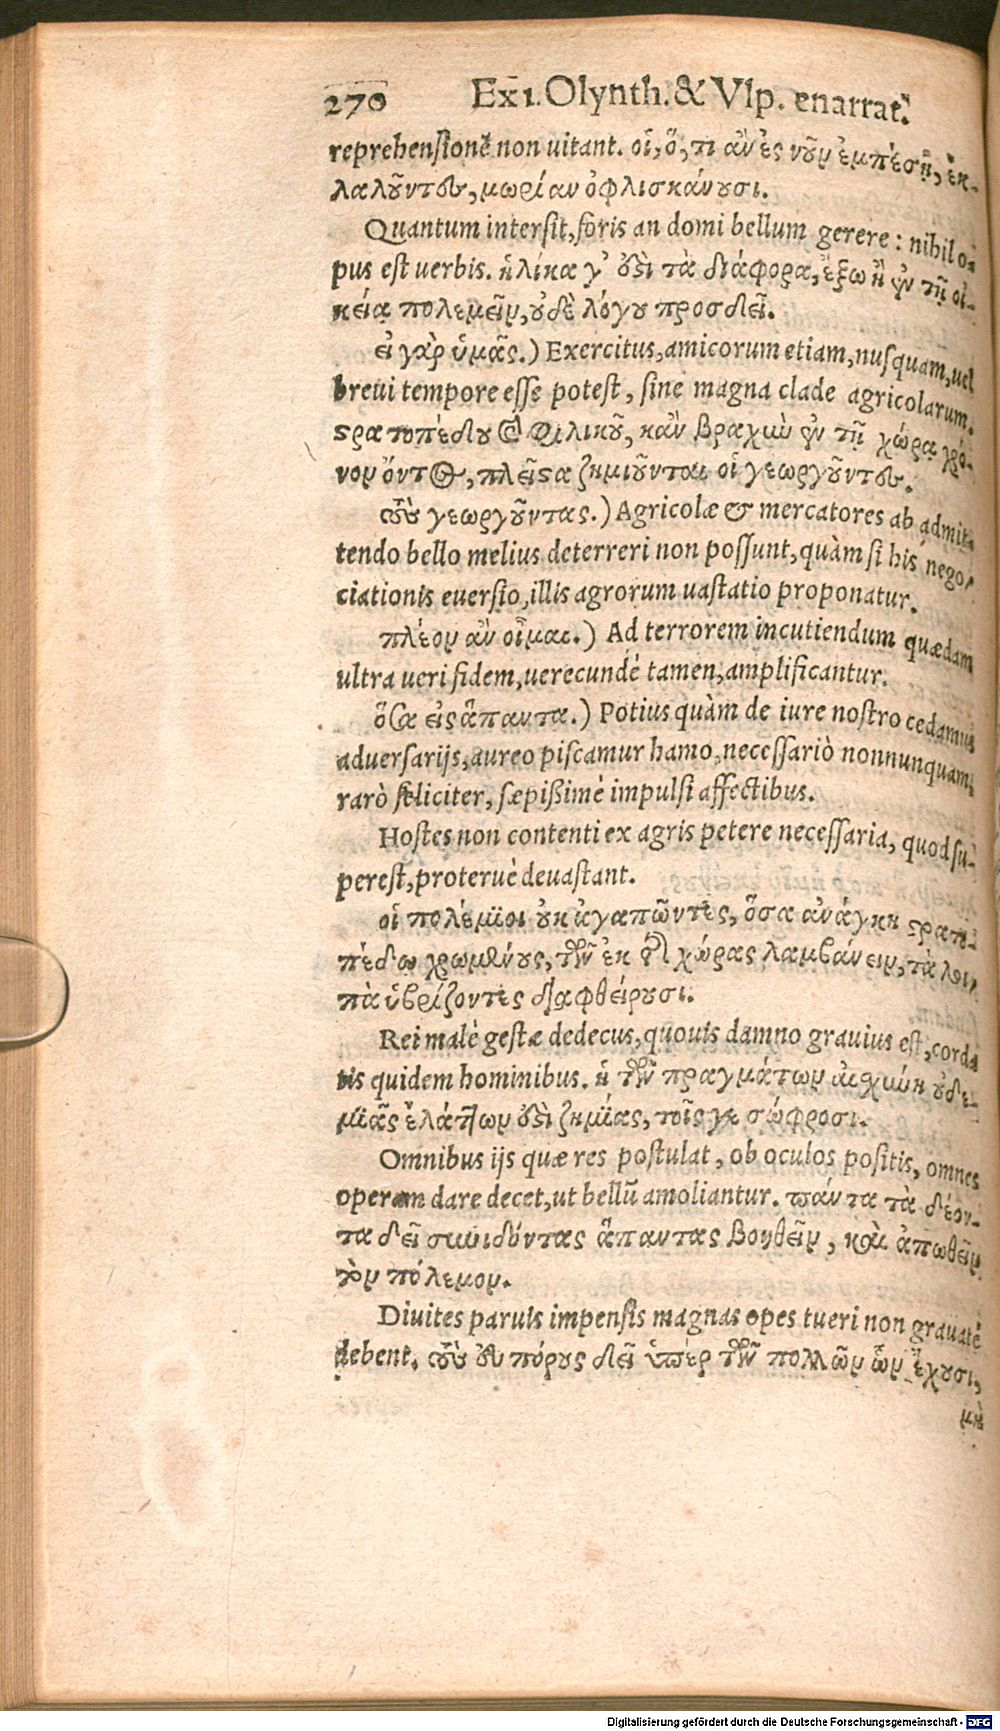 270 Ex 1. Olynth. & Vlp. enarrat.
reprehensionē non uitant. οἱ, ὅ, τι ἂν ἐς νοῦν ἐμπέσῃ, ἐκ-
λαλοῦντες, μωρίαν ὀφλισκάνουσι.
Quantum intersit, foris an domi bellum gerere: nihil o-
pus est uerbis. ἡλίκα γ' ὅϛι τὰ διάφορα, ἔξω ἢ ἐν τῇ οἰ-
κείᾳ πολεμεῖν, οὐδὲ λόγου προσδεῖ.
εἰ γὰρ ὑμᾶς.) Exercitus, amicorum etiam, nusquam, uel
breui tempore esse potest, sine magna clade agricolarum.
ϛρατοπέδου καὶ φιλικοῦ, κἂν βραχὺν ἐν τῇ χώρᾳ χρό-
νον ὄντος, πλεῖϛα ζημιοῦνται οἱ γεωργοῦντες.
τοὺς γεωργοῦντας.) Agricolæ & mercatores ab admit-
tendo bello melius deterreri non possunt, quàm si his nego-
ciationis euersio, illis agrorum uastatio proponatur.
πλέον ἂν οἶμαι.) Ad terrorem incutiendum quædam
ultra ueri fidem, uerecundè tamen, amplificantur.
ὅσα εἰς ἅπαντα.) Potius quàm de iure nostro cedamus
aduersarijs, aureo piscamur hamo, necessariò nonnunquam,
rarò feliciter, sæpißimè impulsi affectibus.
Hostes non contenti ex agris petere necessaria, quod su-
perest, proteruè deuastant.
οἱ πολέμιοι οὐκ ἀγαπῶντες, ὅσα ἀνάγκη ϛρατο-
πέδῳ χρωμένους, τῶν ἐκ τῆς χώρας λαμβάνειν, τὰ λοι-
πὰ ὑβρίζοντες διαφθείρουσι.
Rei malè gestæ dedecus, quouis damno grauius est, corda
tis quidem hominibus. ἡ τῶν πραγμάτων αἰσχύνη οὐδε-
μιᾶς ἐλάττων ὅϛὶ ζημίας, τοῖς γε σώφροσι.
Omnibus ijs quæ res postulat, ob oculos positis, omnes
operam dare decet, ut bellū amoliantur. πάντα τὰ δέον-
τα δεῖ συνιδόντας ἅπαντας βοηθεῖν, καὶ ἀπωθεῖν
τὸν πόλεμον.
Diuites paruis impensis magnas opes tueri non grauatè
debent. τοὺς εὐπόρους δεῖ ὑπὲρ τῶν πολλῶν ὧν ἔχουσι,
μὴ
Digitalisierung gefördert durch die Deutsche Forschungsgemeinschaft - DFG